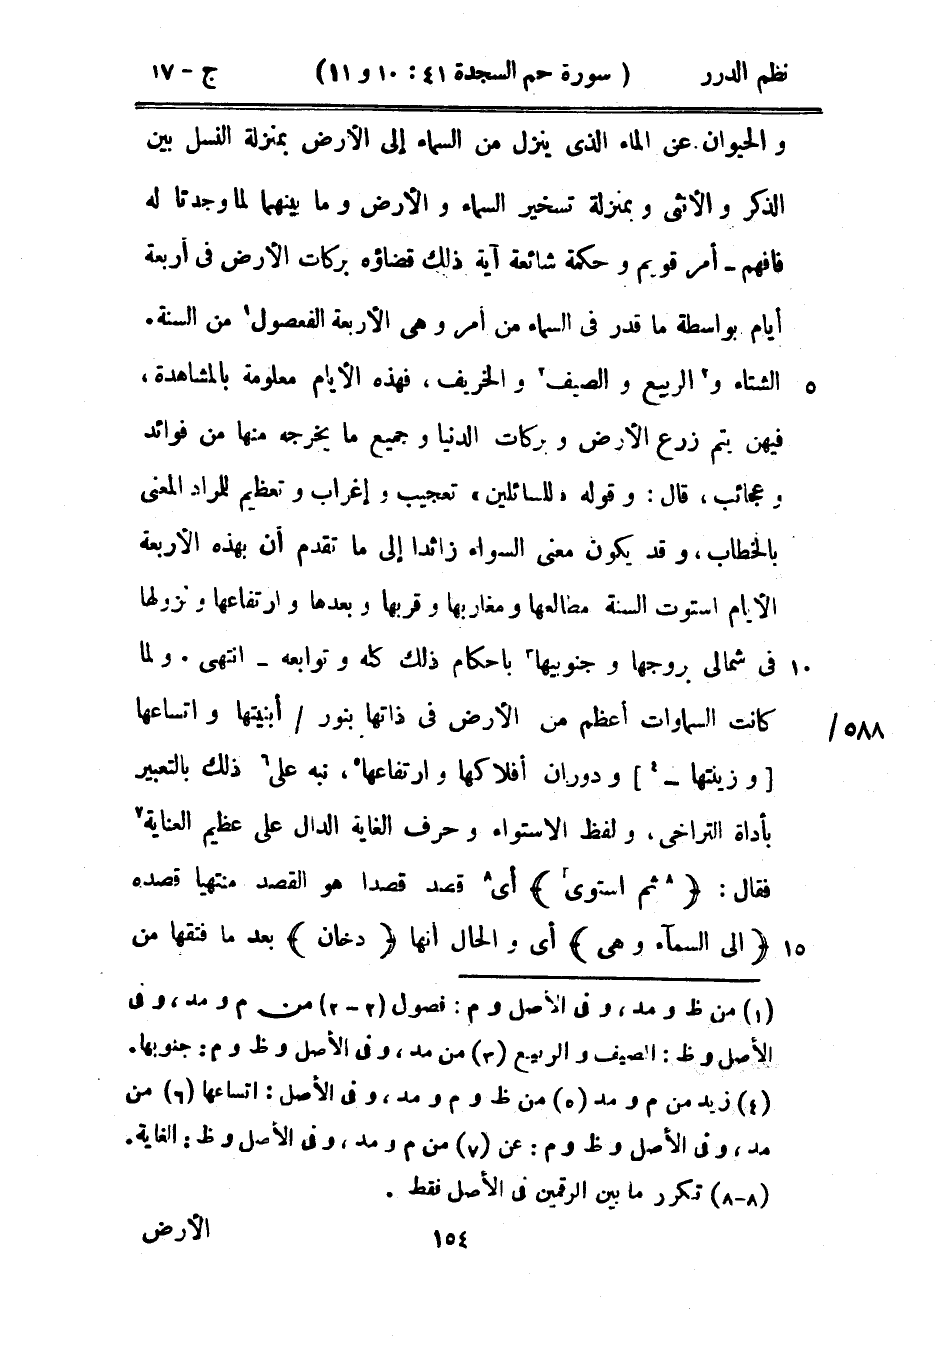 نظم الدرر ( سورة حم السجدة ٤١ : ١٠ و ١١ ) ج - ١٧
و الحيوان عن الماء الذى ينزل من السماء إلى الأرض بمنزلة النسل بين
الذكر و الأنثى و بمنزلة تسخير السماء و الأرض و ما بينهما لما وجدتا له
فافهم ـ أمر قويم و حكمة شائعة آية ذلك قضاؤه بركات الأرض فى أربعة
أيام بواسطة ما قدر فى السماء من أمر و هى الأربعة الفصول١ من السنة .
٥ الشتاء و٢ الربيع و الصيف٢ و الخريف ، فهذه الأيام معلومة بالمشاهدة ،
فيهن يتم زرع الأرض و بركات الدنيا و جميع ما يخرجه منها من فوائد
و عجائب ، قال : و قوله « للسائلين » تعجيب و إغراب و تعظيم للراد المعنى
بالخطاب ، و قد يكون معنى السواء زائدا إلى ما تقدم أن بهذه الأربعة
الأيام استوت السنة مطالعها و مغاربها و قربها و بعدها و ارتفاعها و نزولها
١٠ فى شمالى بروجها و جنوبيها٣ باحكام ذلك كله و توابعه ـ انتهى . و لما
كانت السماوات أعظم من الأرض فى ذاتها بنور / أبنيتها و اتساعها /٥٨٨
[ و زينتها ـ٤ ] و دوران أفلاكها و ارتفاعها٥ ، نبه على٦ ذلك بالتعبير
بأداة التراخى ، و لفظ الاستواء و حرف الغاية الدال على عظيم العناية٧
فقال : ﴿ ٨ ثم استوىٓ ﴾ أى٨ قصد قصدا هو القصد منتهيا قصده
١٥ ﴿ الى السمآء و هى ﴾ أى و الحال أنها ﴿ دخان ﴾ بعد ما فتقها من
(١) من ظ و مد ، و فى الأصل و م : فصول (٢ - ٢) من م و مد ، و فى
الأصل و ظ : الصيف و الربيع (٣) من مد ، و فى الأصل و ظ و م : جنوبها .
(٤) زيد من م و مد (٥) من ظ و م و مد ، و فى الأصل : اتساعها (٦) من
مد ، و فى الأصل و ظ و م : عن (٧) من م و مد ، و فى الأصل و ظ : الغاية .
(٨-٨) تكرر ما بين الرقمين فى الأصل فقط .
١٥٤ الأرض